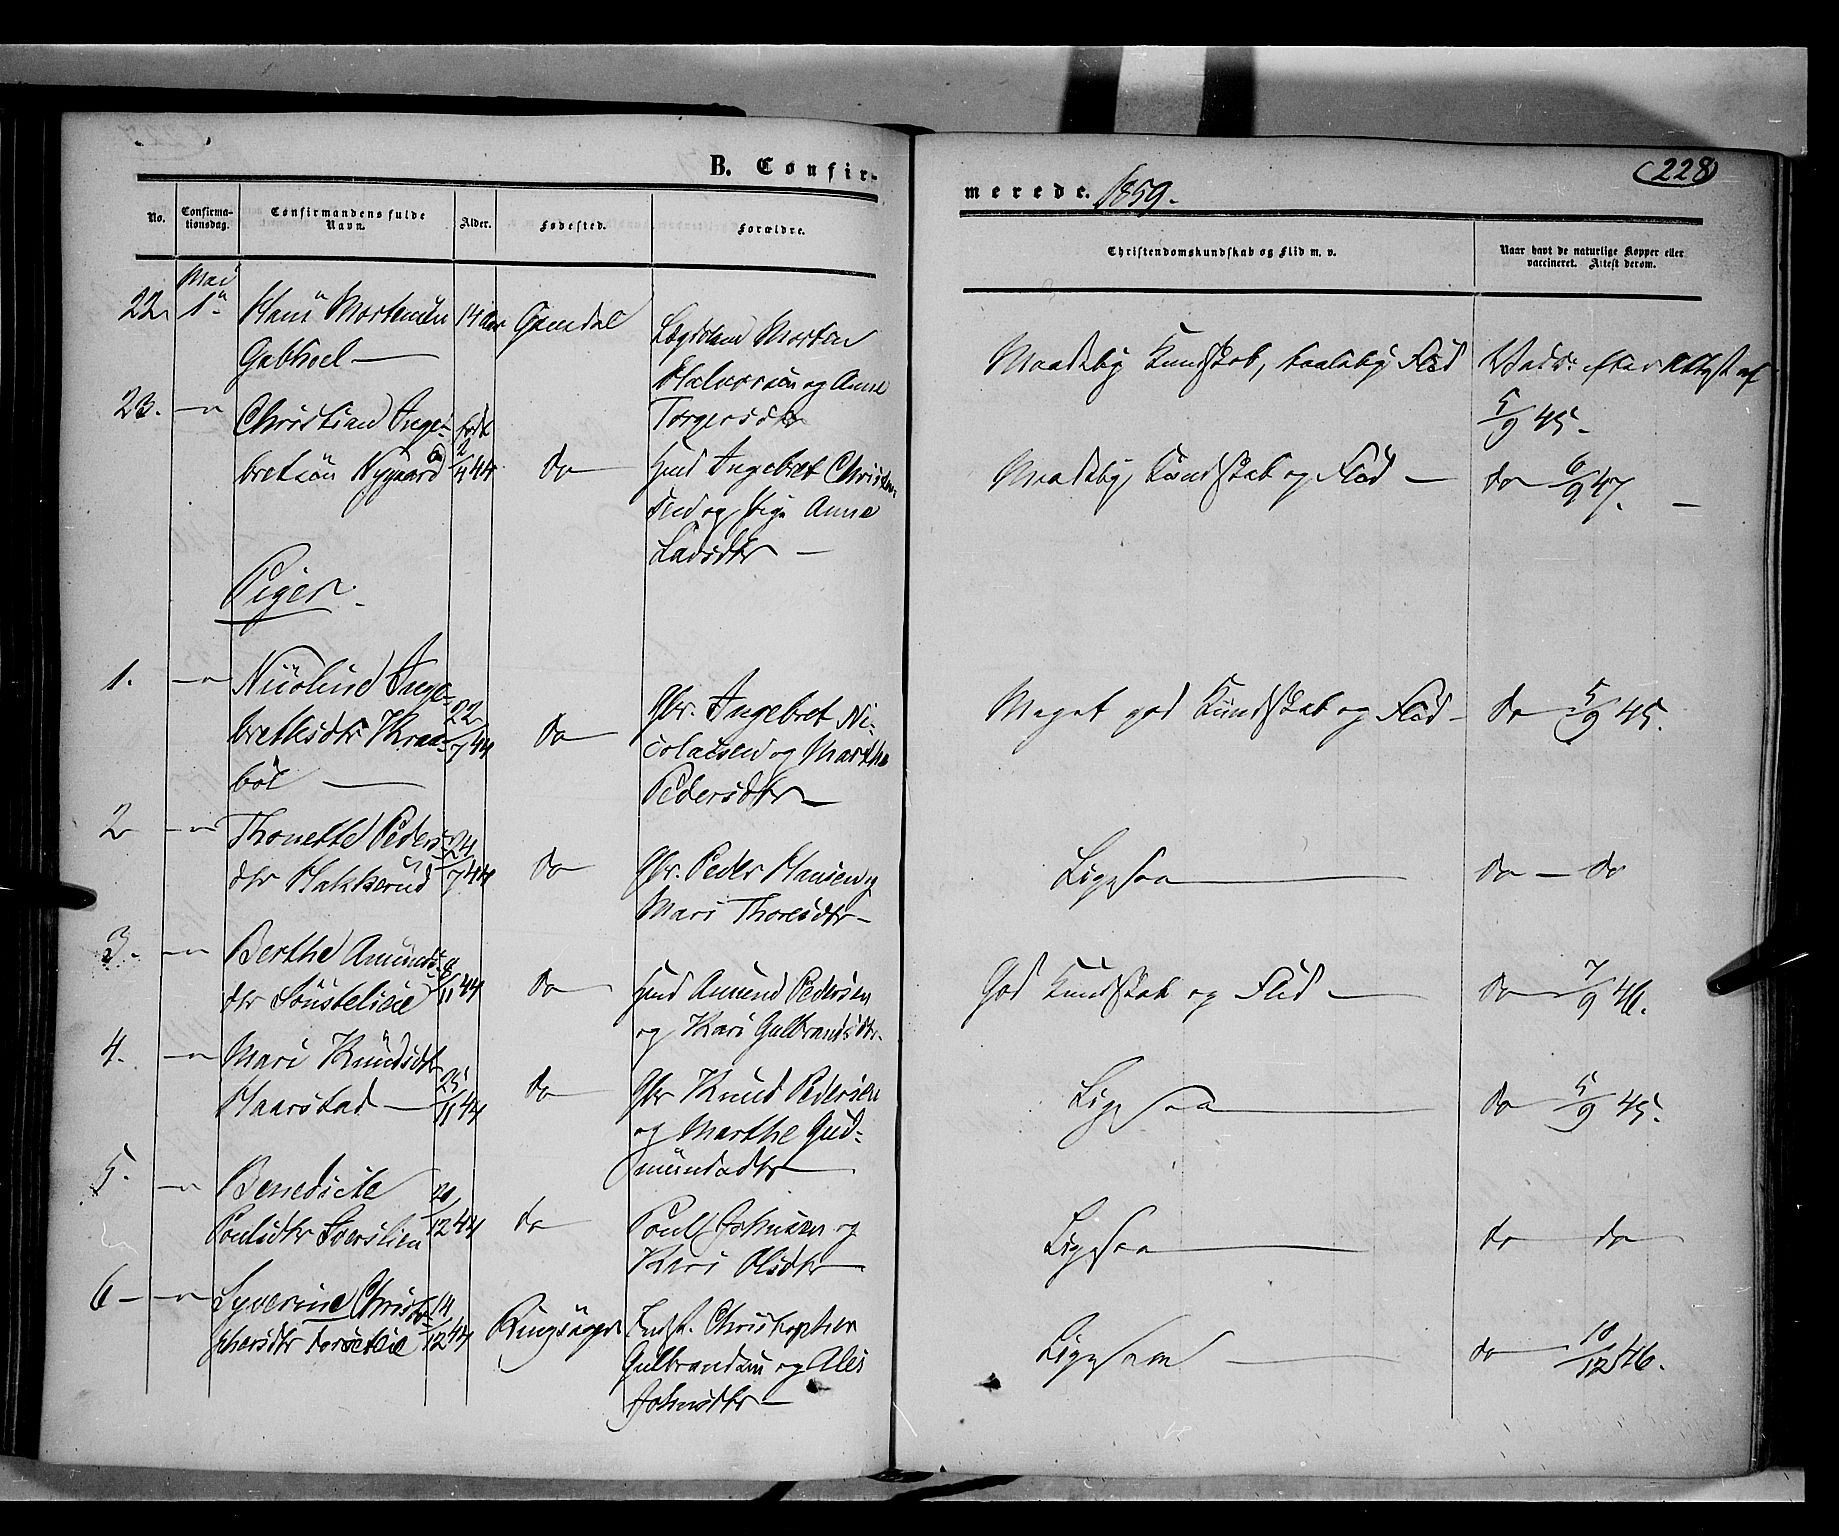 B. Confir-
merede. 1859.
228
No.
Confirma-
tionsdag.
Confirmandens fulde
Navn.
Alder.
Fødested.
Forældre.
Christendomskundskab og Flid m. v.
Naar havt de naturlige Kopper eller
vaccineret. Attest derom.
Mai
22 1ste Hans Mortensen 14 Aar Gausdal
Gabhoel —
Morten
Halvorsen og Anne
Torgersdtr
Maadelig Kundskab, Flid Vacc: efter Attest af
5/9 45.
23. —"— Christian Inge- født
bretsøn Nygaard 2/4 44 do Hmd Ingebret Christen
og Pige Anne
Ladsdtr —
Maadelig Kundskab og Flid — do 6/9 47. —
Piger.
1. —"— Nicoline Inge-
bretsdtr Kraa-
böl —
22/7 44 do Gbr. Ingebret Ni-
colaisen og Marthe
Pedersdtr —
Meget god Kundskab og Flid — do 5/9 45.
2 —"— Thonette Peders
dtr Hakkerud 24/7 44 do Gbr. Peder Hansen og
Mari Thoresdtr —
Ligesaa — do — do
3. —"— Berthe Amunds
dtr 8/11 44 do Hmd Amund Pedersen
og Kari Gulbrandsdtr.
God Kundskab og Flid — do 7/9 46.
4. —"— Mari Knudsdtr
Haarstad — 25/11 44 do Gbr Knud Pedersen
og Marthe Gud-
mundsdtr
Ligesaa — do 5/9 45.
5. —"— Benedicte
Poulsdtr 20/12 44 do Poul Johnsen og
Kari Olsdtr
Ligesaa — do do
6 — —"— Syverine Christo-
phersdtr 14/12 44 Ringsager Indst. Christopher
Gulbrandsen og
Johnsdtr —
Ligesaa — do 10/12 46.